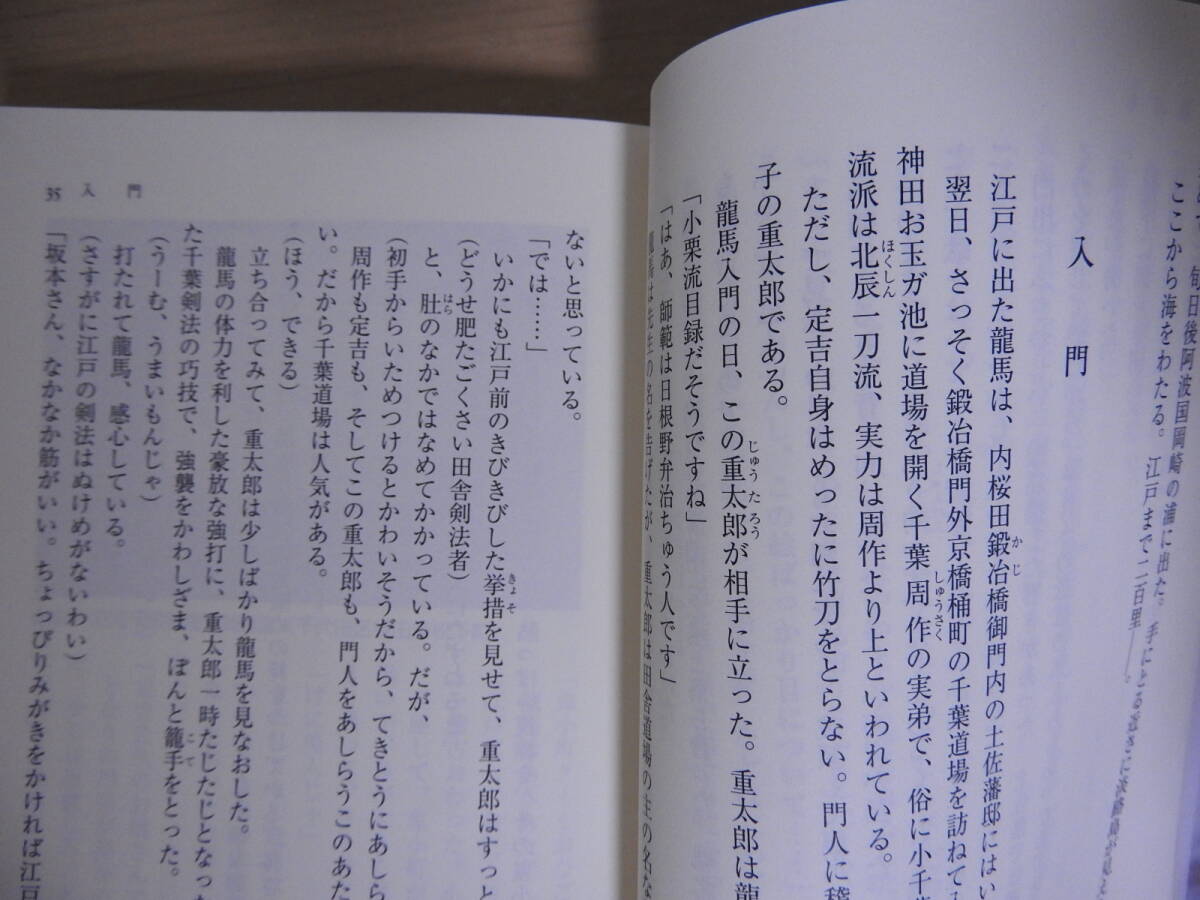 旬日後阿波国岡崎の浦に出た。手にとる近さに淡路島が見え
ここから海をわたる。江戸まで二百里――。
入門
江戸に出た龍馬は、内桜田鍛冶橋御門内の土佐藩邸にはい
翌日、さっそく鍛冶橋門外京橋桶町の千葉道場を訪ねて入
神田お玉ガ池に道場を開く千葉周作の実弟で、俗に小千葉
流派は北辰一刀流、実力は周作より上といわれている。
ただし、定吉自身はめったに竹刀をとらない。門人に稽
子の重太郎である。
龍馬入門の日、この重太郎が相手に立った。重太郎は龍
「小栗流目録だそうですね」
「はあ、師範は日根野弁治ちゅう人です」
龍馬は先生の名を告げたが、重太郎は田舎道場の主の名な
35 入門
ないと思っている。
「では……」
いかにも江戸前のきびきびした挙措を見せて、重太郎はすっと
(どうせ肥たごくさい田舎剣法者)
と、肚のなかではなめてかかっている。だが、
(初手からいためつけるとかわいそうだから、てきとうにあしら
周作も定吉も、そしてこの重太郎も、門人をあしらうこのあた
い。だから千葉道場は人気がある。
(ほう、できる)
立ち合ってみて、重太郎は少しばかり龍馬を見なおした。
龍馬の体力を利した豪放な強打に、重太郎一時たじたじとなった
た千葉剣法の巧技で、強襲をかわしざま、ぽんと籠手をとった。
(うーむ、うまいもんじゃ)
打たれて龍馬、感心している。
(さすがに江戸の剣法はぬけめがないわい)
「坂本さん、なかなか筋がいい。ちょっぴりみがきをかければ江戸